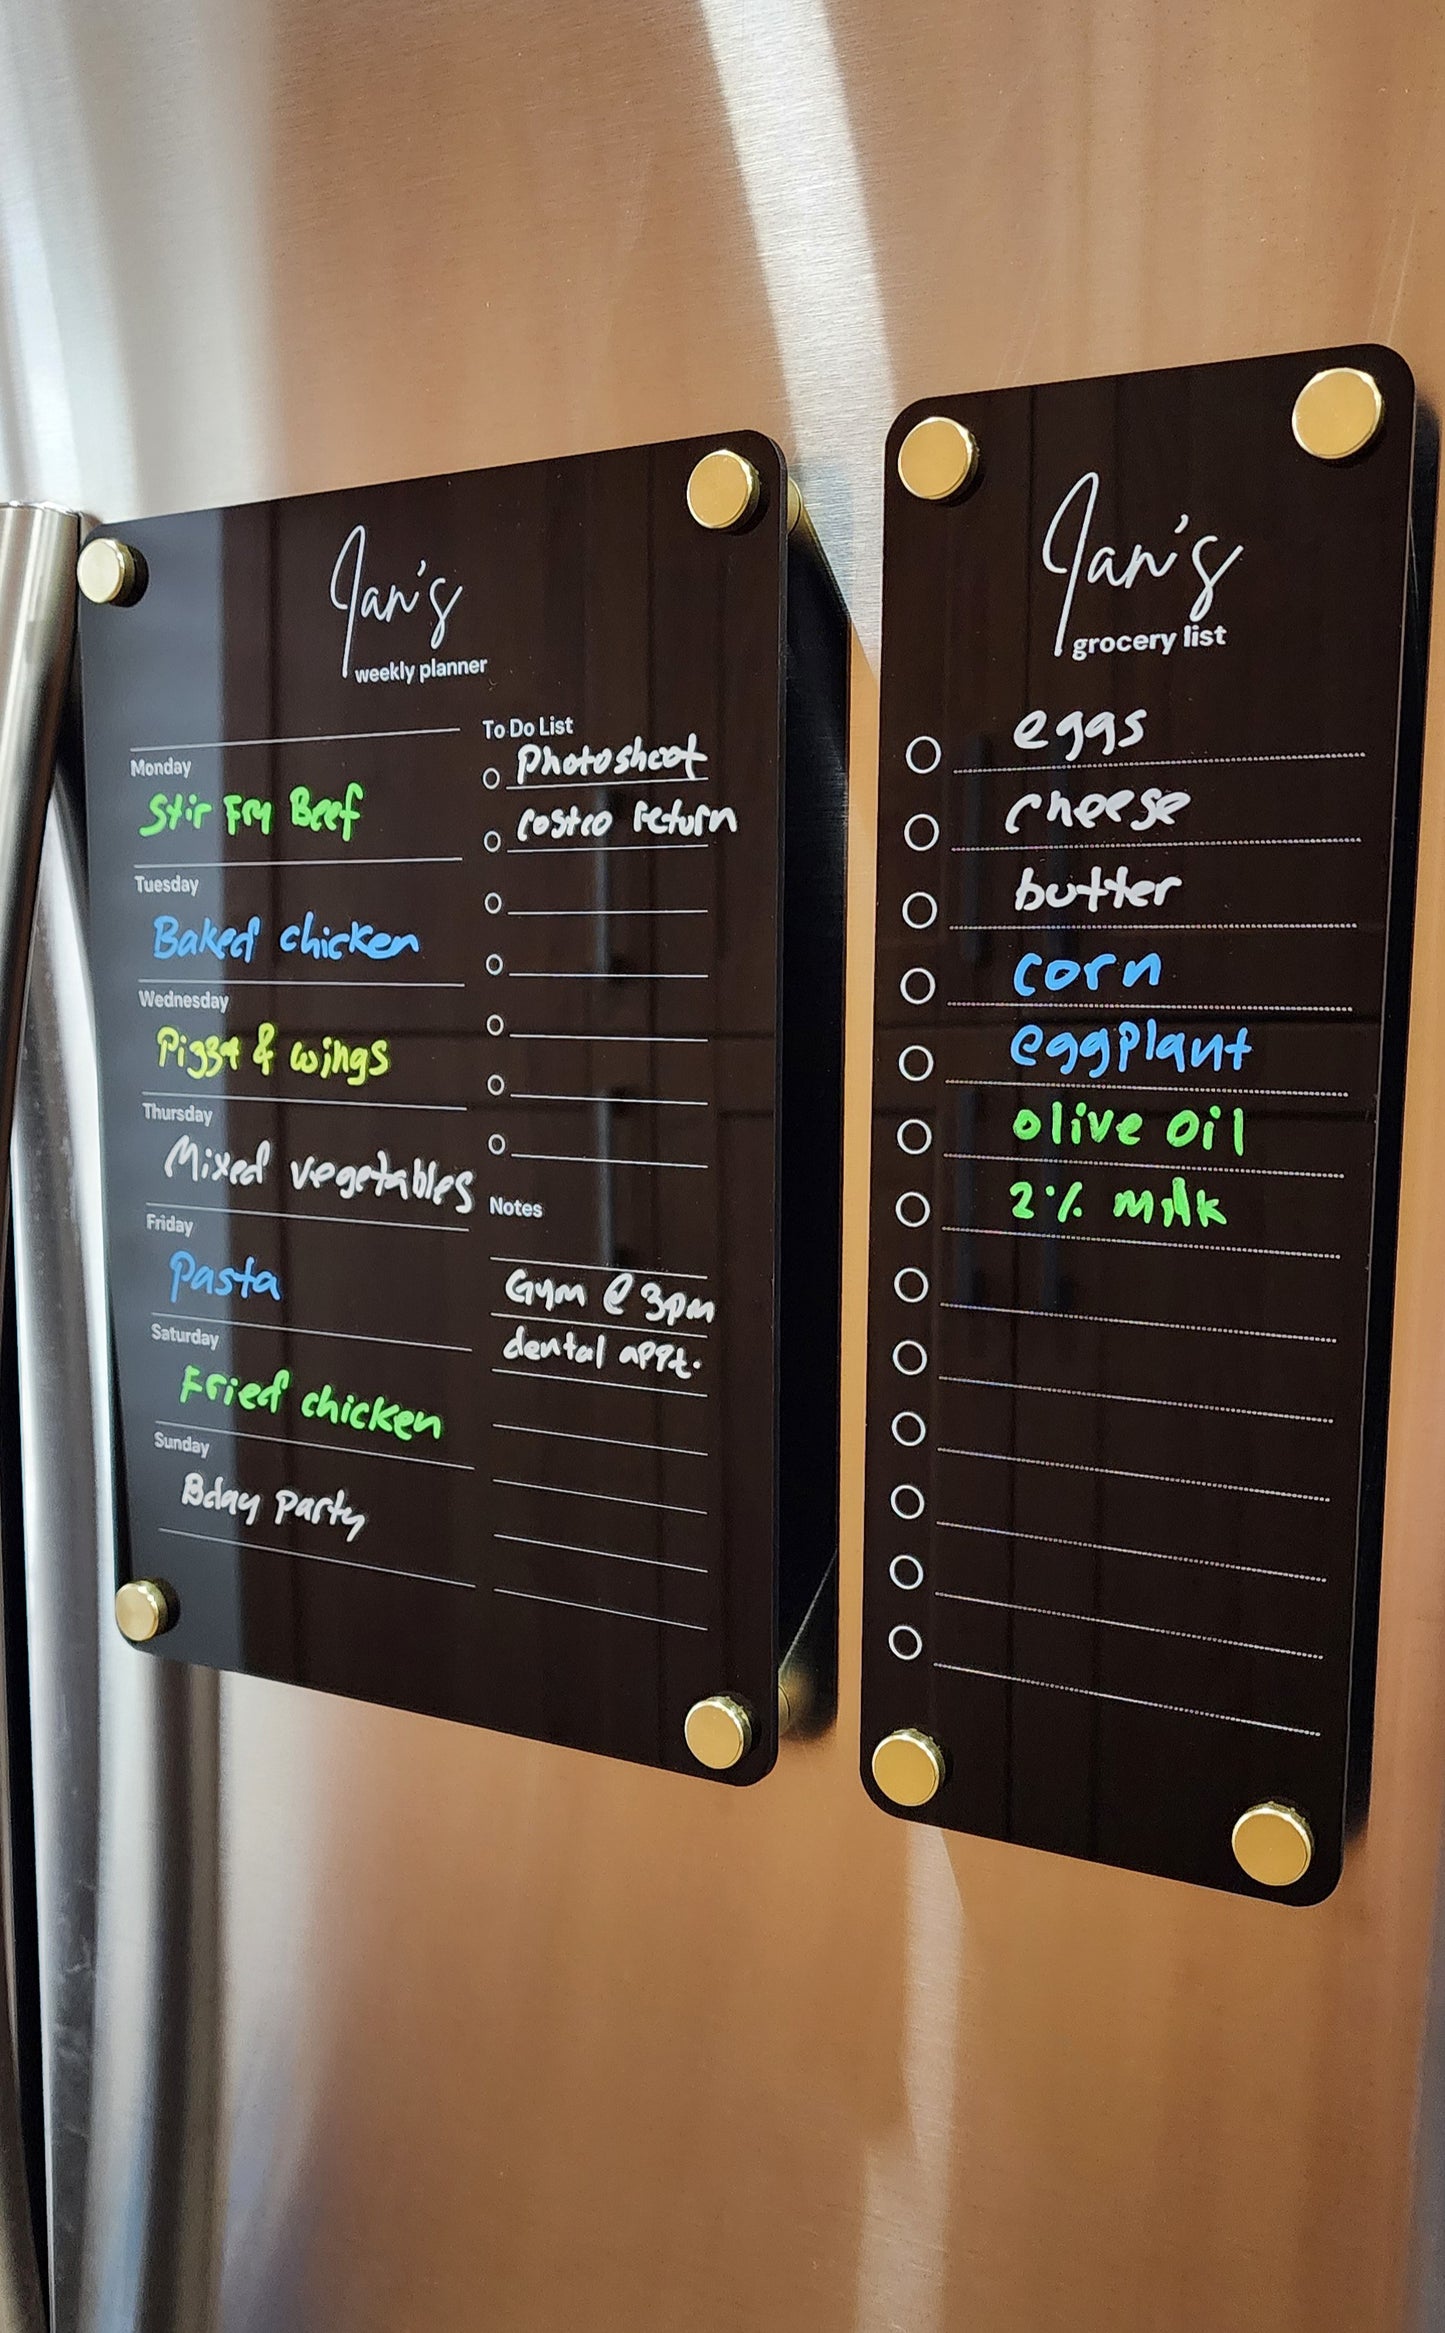 Jan's
weekly planner
Monday
Stir Fry Beef
Tuesday
Baked chicken
Wednesday
Pizza & wings
Thursday
Mixed vegetables
Friday
Pasta
Saturday
Fried chicken
Sunday
Bday Party
To Do List
Photoshoot
costco return
Notes
Gym @ 3pm
dental appt.
Jan's
grocery list
eggs
cheese
butter
corn
eggplant
olive oil
2% milk